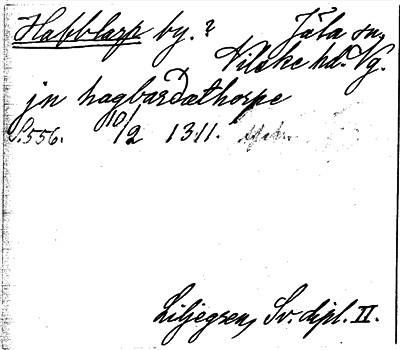 Habblarp by. ? Jäla sn,
Vilske hd. Vg.
jn hagbardæthorpe
S. 556. 10/2 1311.
Liljegren, Sv. dipl. II.